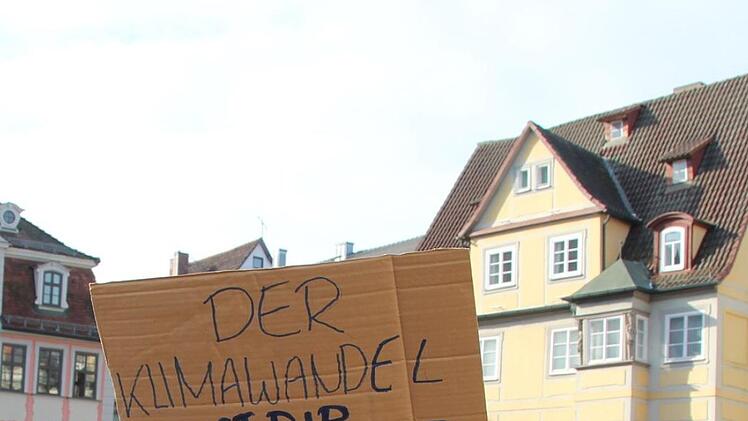 DER
KLIMAWANDEL
IST DIR